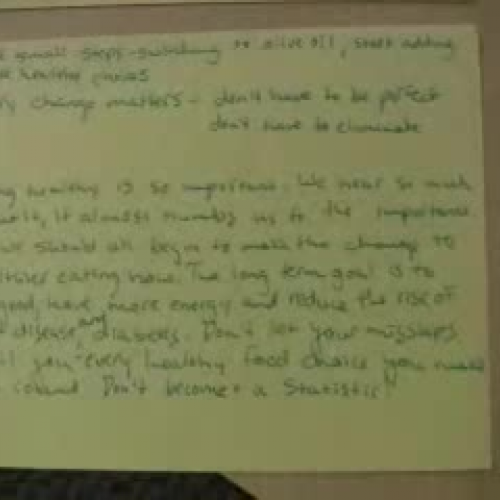 small steps - switching to olive oil, start adding
healthier
change matters - don't have to be perfect
don't have to eliminate
healthy is so important. We hear so much
it, it almost numbs us to the importance
should all begin to make the change to
eating now. The long term goal is to
good, have more energy and reduce the risk of
disease, and diabetes. Don't let your missteps
you - every healthy food choice you make
Don't become a statistic!